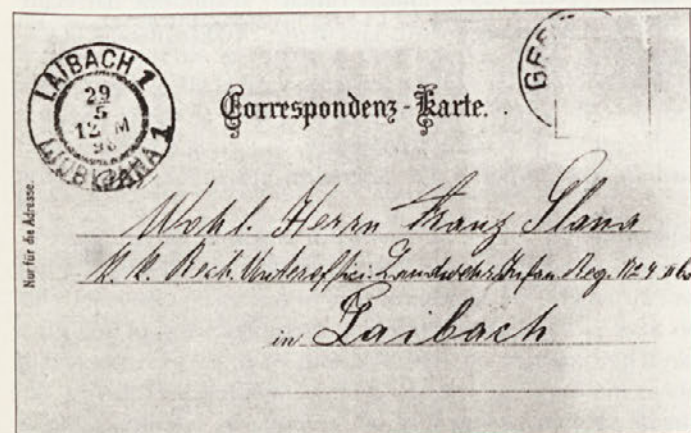 LAIBACH 1
29
5
12 M
LJUBLJANA 1
Correspondenz-Karte.
Nur für die Adresse.
Wohl. Herrn Franz Slana
K. K. Rech. Unteroffici. Landwehr Infan. Reg. No 4
in Laibach